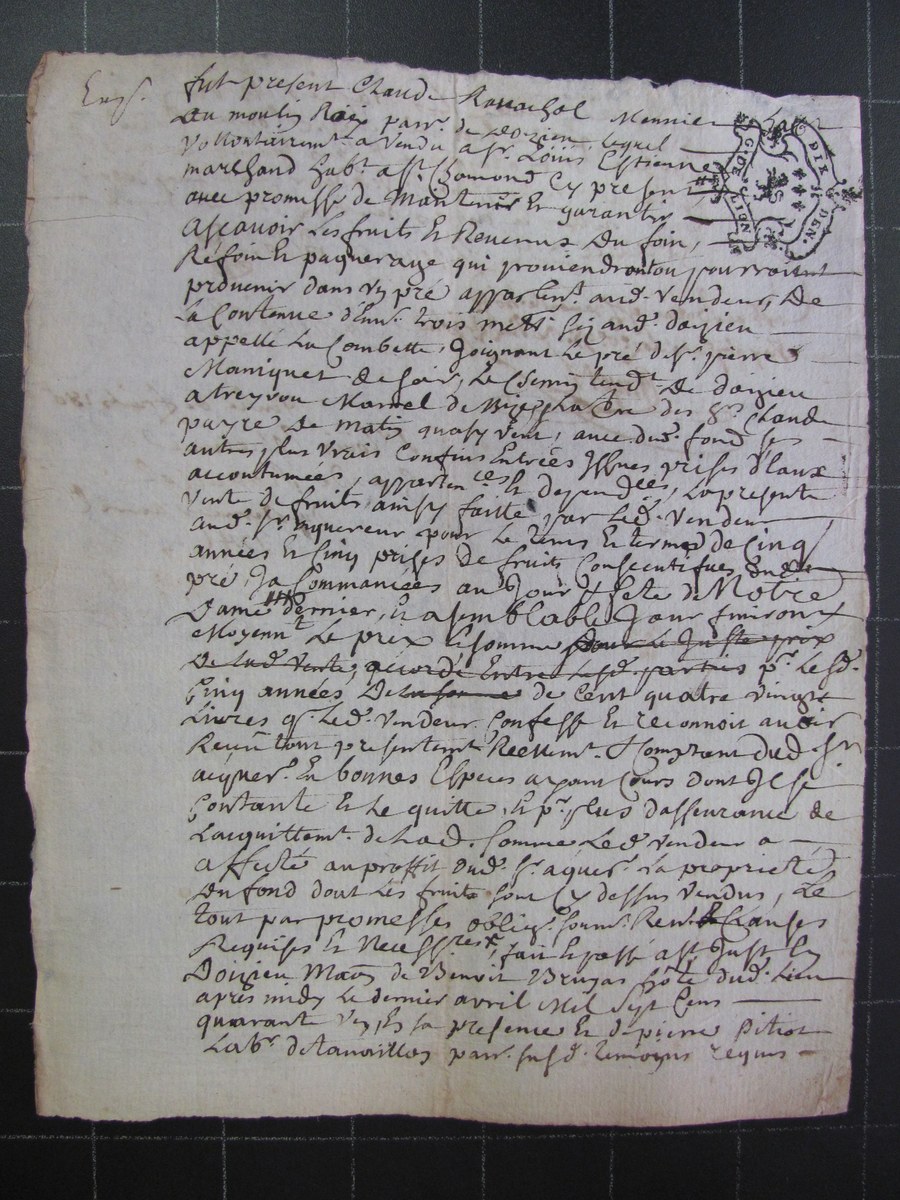 Exp.
fut present Claude Ravachol Meunier hab.t
Du moulin Roix parr. de doizieu lequel
Vollontairem.t a Vendu a S.r Louis Estienne
marchand hab.t a S.t Chomond Cy present
avec promesse de Maintenir Et garantir
G. DE LION DIX DEN.
ascavoir Les fruits Et Revenus Du foin,
Refoin Et paquerage qui proviendront ou pourroient
provenir dans un pré appartent. aud. Vendeur, De
La Contenue d'Env. trois mett. Size aud. doizieu
appellé La Combette, Joignant Le pré de S.r pierre
Maniquet de soir, Le Chemin tend.t De doizieu
a treyvou Marcel de Bize, La terre des h.rs Claude
payre De matin quasy vent, avec dud. fond ses
autres plus vrais Confins Entrées Issues prises D'Eaux
accoutumées, apparten.ces Et dependées, La presente
Vente De fruits ainsy faitte par Led. Vendeur
aud. Sr. aquereur pour Le tems Et terme De Cinq
années Et Cinq prises De fruits Consecutifues Dud.
pré, Ja Commancées au Jour & fete De Notre
Dame dernier, Et a semblable Jour finiront
Moyenn.t Le prix Et somme pour Le Juste prix
De Lad. Vente, acordé Entre Lesd. parties p.r Lesd.
Cinq années De La somme de Cent quatre Vingt
Livres q. Led. Vendeur Confesse Et reconnoit avoir
Receu tout presentem.t Reellem.t & Comptant dud. Sr.
aquer. En bonnes Especes ayant Cours dont Il se
Contante Et Le quitte, Et p.r plus d'asseurance de
L'acquittem.t de Lad. somme Led. Vendeur a
affecté au proffit Dud. S.r aquer. La proprieté
Du fond dont Les fruits sont Cy dessus Vendus, Le
tout par promesses oblig. soum. Ren. & Clauses
Requises Et Necess.res, fait Et passé a S.t Just En
Doizieu Maison de Benoit Bruyas hôte dud. Lieu
après midy Le dernier avril Mil Sept Cens
quarant Un, En sa presence Et De pierre Pitiot
Lab.r parr. susd. temoins requis